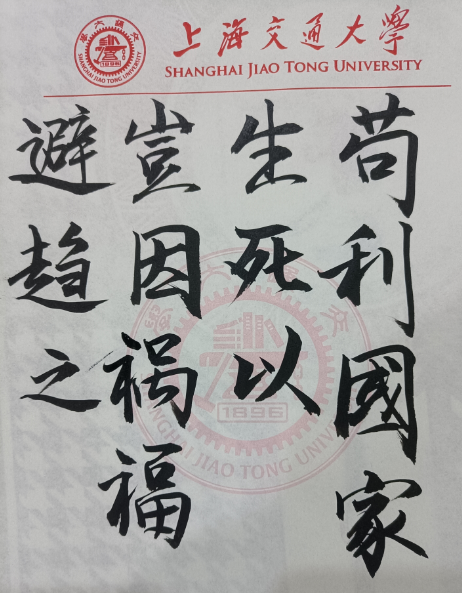 上海交通大學
SHANGHAI JIAO TONG UNIVERSITY
苟利國家
生死以
豈因祸福
避趋之
1896
SHANGHAI JIAO TONG UNIVERSITY